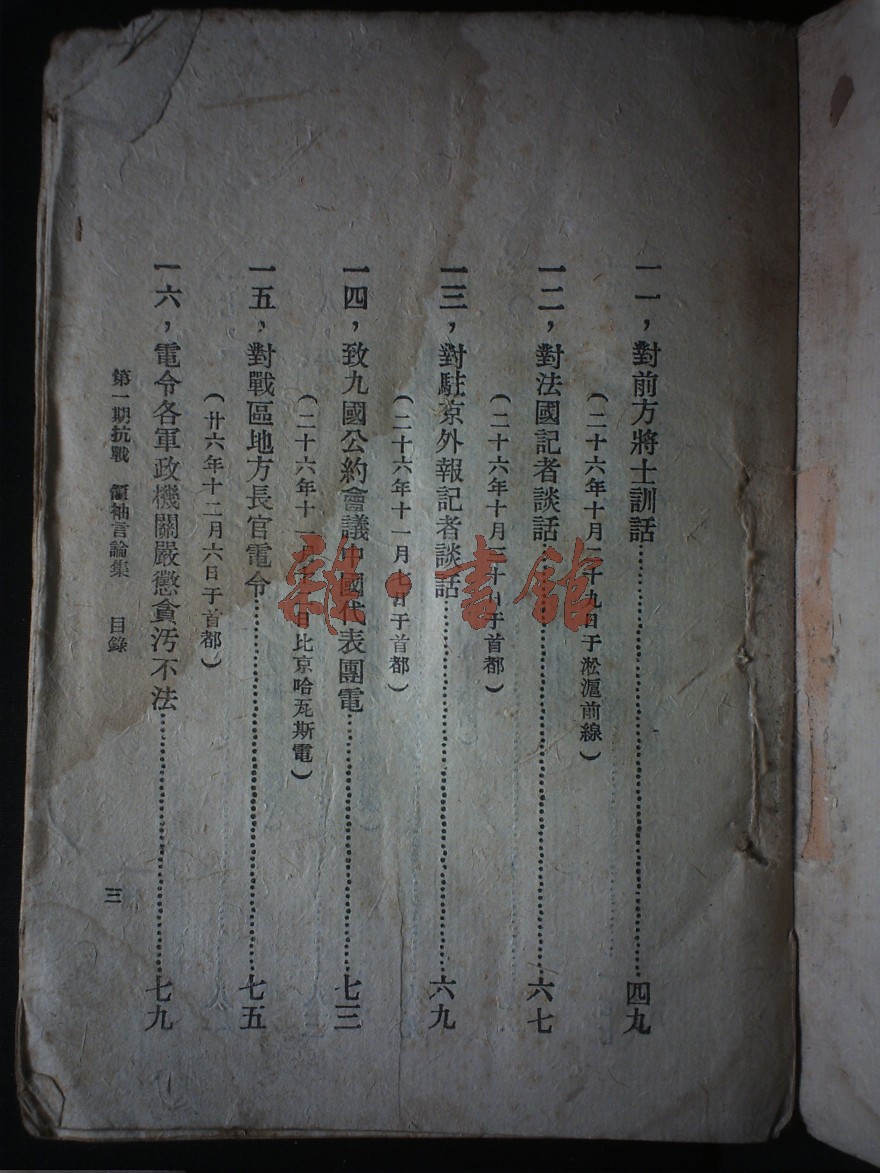 一一，對前方將士訓話……四九
（二十六年十月二十九日于淞滬前線）
一二，對法國記者談話……六七
（二十六年十月三十日于首都）
一三，對駐京外報記者談話……六九
（二十六年十一月七日于首都）
一四，致九國公約會議中國代表團電……七三
（二十六年十一月 日比京哈瓦斯電）
一五，對戰區地方長官電令……七五
（廿六年十二月六日于首都）
一六，電令各軍政機關嚴懲貪污不法……七九
第一期抗戰 領袖言論集 目錄
三
雜·書館